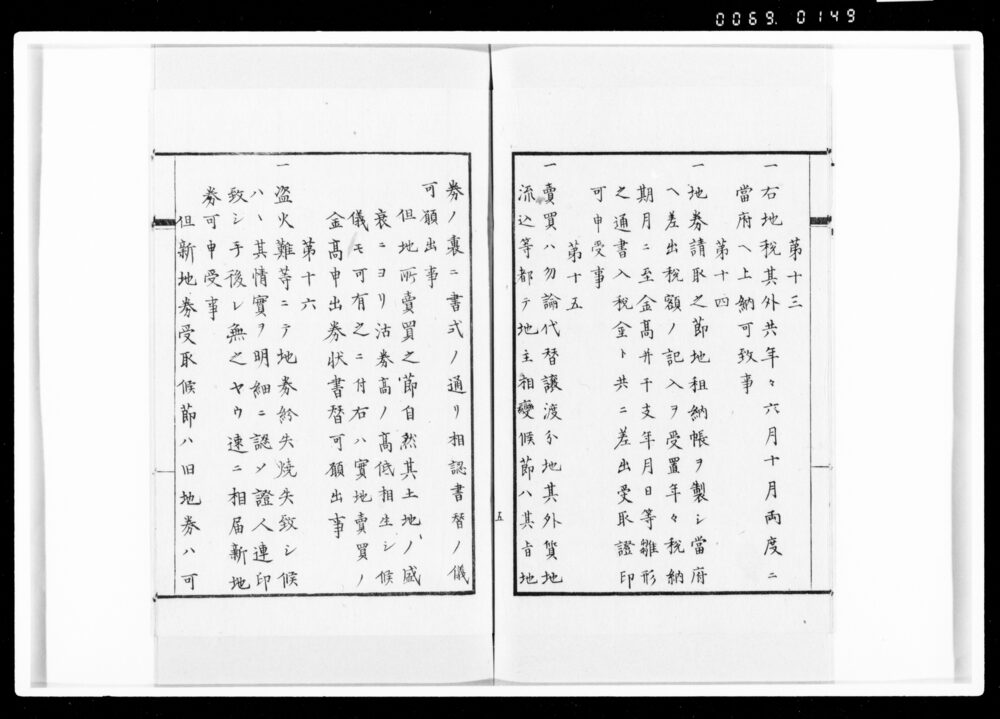 0069. 0149
第十三
一右地税其外共年々六月十月両度ニ
當府ヘ上納可致事
第十四
一地券請取之節地租納帳ヲ製シ當府
ヘ差出税額ノ記入ヲ受置年々税納
期月ニ至金高并干支年月日等雛形
之通書入税金ト共ニ差出受取證印
可申受事
第十五
一賣買ハ勿論代替譲渡分地其外質地
流込等都テ地主相變候節ハ其旨地
五
券ノ裏ニ書式ノ通リ相認書替ノ儀
可願出事
但地所賣買之節自然其土地ノ盛
衰ニヨリ沽券高ノ高低相生シ候
儀モ可有之ニ付右ハ實地賣買ノ
金高申出券状書替可願出事
第十六
一盗火難等ニテ地券紛失焼失致シ候
ハヽ其情實ヲ明細ニ認メ證人連印
致シ手後レ無之ヤウ速ニ相届新地
券可申受事
但新地券受取候節ハ旧地券ハ可